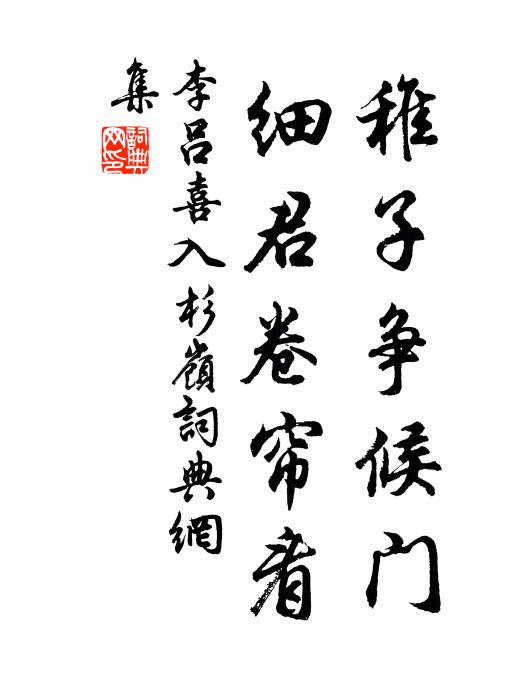 稚子争候门
细君卷帘看
李吕喜入杉嶺詞典網
集
詞典网印